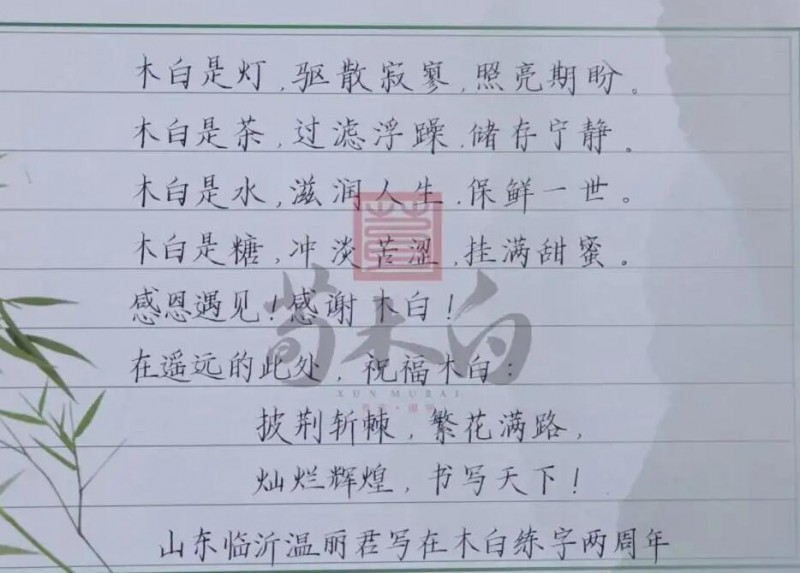 木白是灯,驱散寂寥,照亮期盼。
木白是茶,过滤浮躁,储存宁静。
木白是水,滋润人生,保鲜一世。
木白是糖,冲淡苦涩,挂满甜蜜。
感恩遇见!感谢木白!
荀木白
在遥远的此处,祝福木白:
XUN MUBAI
披荆斩棘,繁花满路,
灿烂辉煌,书写天下!
山东临沂温丽君写在木白练字两周年